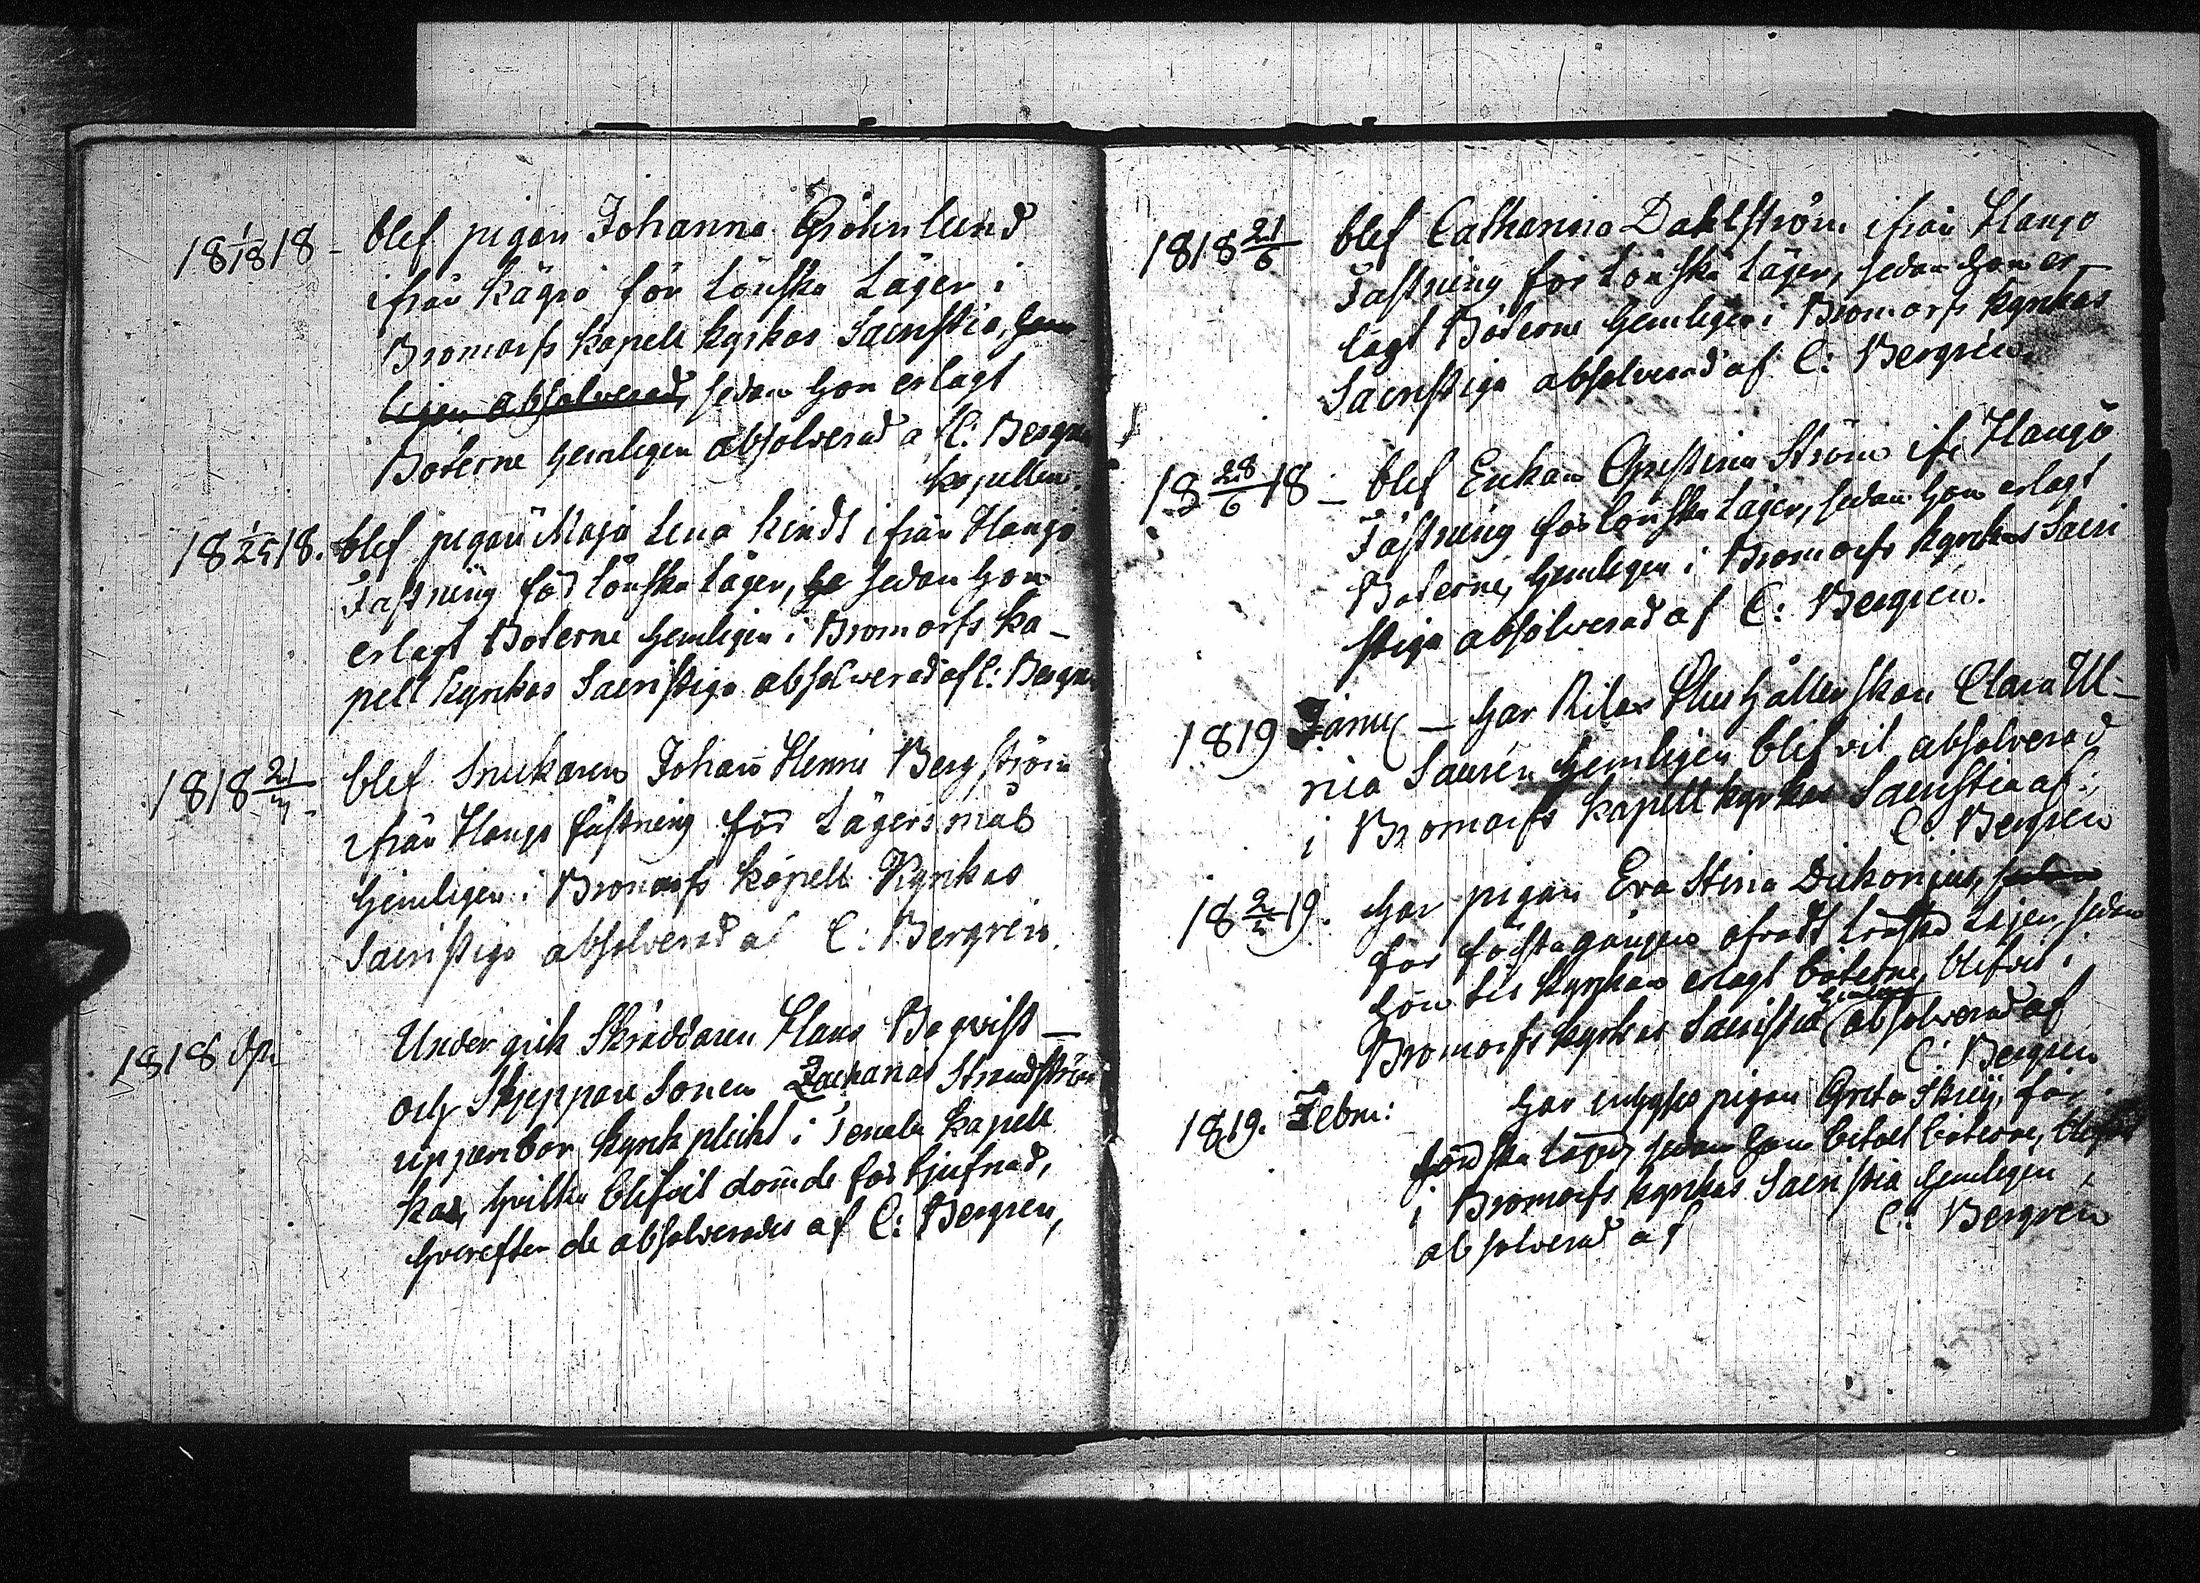 18 1/18 18 - blef pigan Johanna Gröhnlund
ifrån Kägrö för Lönska Läger i
Bromarfs Kapell kyrkas Sacristia, hem
ligen absolverad, sedan hon erlagt
Böterne hemligen absolverad af C: Bergren
kapellan.
18 1/25 18. blef pigan Maja Lena Kindt ifrån Hangö
Fästning för Lönska Läger, he sedan hon
erlagt Böterne hemligen i Bromarfs Ka-
pell kyrkas Sacristiga absolverad af C: Bergren
1818 21/ blef Snickaren Johan Henric Bergström
ifrån Hangö fästning för Lägersmål
hemligen i Bromarfs Kapell Kyrkas
Sacristiga absolverad af C: Bergren.
1818 Undergick Skräddaren Hans Begvist -
och Skeppare Sonen Zacharias Strandström
uppenbar kyrkplickt i Tenala Kapell
ka, hvilka blifvit dömde för tjufnad,
hvarefter de absolverades af C: Bergren,
1818 21/6 blef Catharina Dahlström ifrån Hangö
Fästning för Lönska Läger, sedan hon er-
lagt Böterne hemligen i Bromarfs kyrkas
Sacristiga absolverad af C: Bergren.
18 28/6 18 - blef Enkan Christina Ström if: Hangö
Fästning för Lönska Läger, sedan hon erlagt
Böterne, hemligen i Bromarfs kyrkas Sacri
stiga absolverad af C: Bergren.
1819 Janu - har Clara Ul-
rica Sauren hemligen blifvit absolverad
i Bromarfs Kapell kyrkas Sacristia af:
C: Bergren
18 2/2 19. har pigan Eva Stina Dickonius, sedan
för första gången Läger, sedan
hon til kyrkan erlagt böterne, blifvit i
Bromarfs kyrkas Sacristia hemligen absolverad af
C: Bergren
1819. Febru: har pigan Greta för
Läger, sedan hon betalt böterne, blifvit
i Bromarfs kyrkas Sacristia hemligen
absolverad af C: Bergren